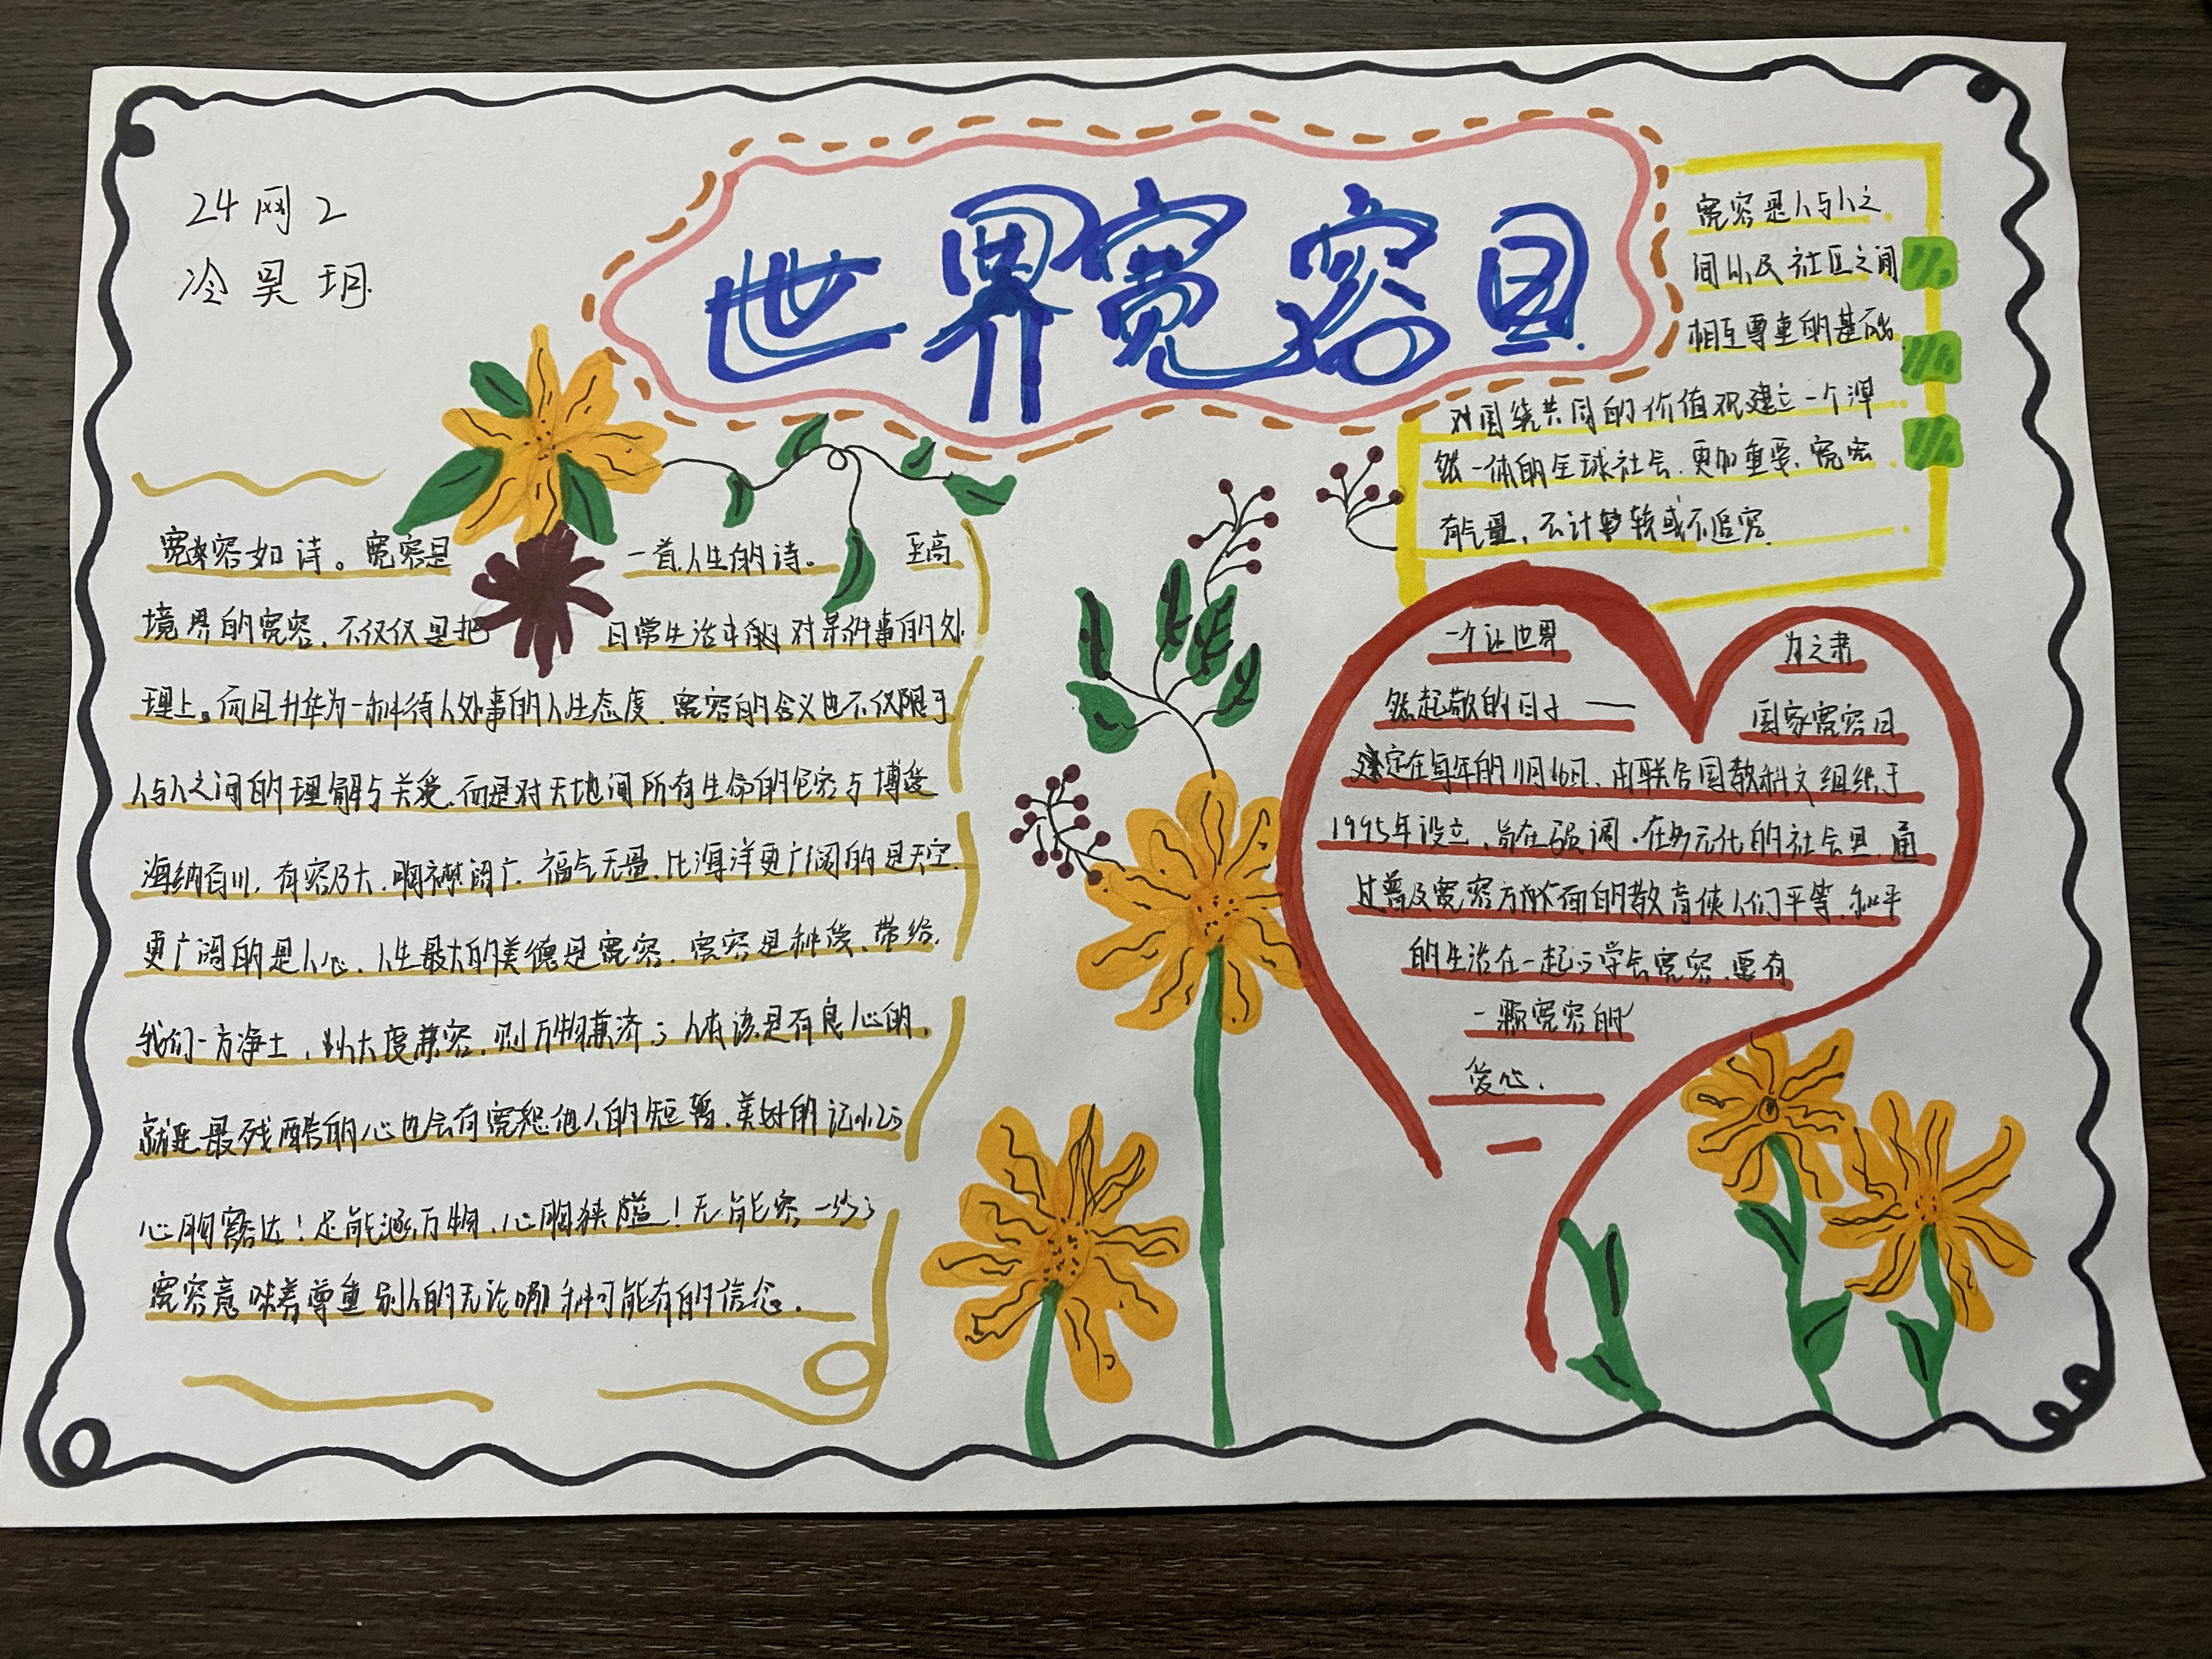 24网2
冷昊玥
世界宽容日
宽容是人与人之
间以及社区之间
相互尊重的基础.
对围绕共同的价值观建立一个浑
然一体的全球社会.更加重要、宽宏
有气量,不计较或不追究.
宽容如诗。宽容是一首人生的诗。至高
境界的宽容.不仅仅是把日常生活中的对某件事的处
理上。而且升华为一种待人处事的人生态度.宽容的含义也不仅限于
人与人之间的理解与关爱.而是对天地间所有生命的包容与博爱
海纳百川,有容乃大.胸襟阔广.福气无量.比海洋更广阔的是天空.
更广阔的是人心.人生最大的美德是宽容.宽容是种爱、带给.
我们一方净土,以大度兼容.则万物兼济;人本该是有良心的.
就连最残酷的心也会有宽恕他人的短暂.美好的记忆;
心胸豁达!足能涵万物.心胸狭隘!无能容一沙;
宽容意味着尊重别人的无论哪种可能有的信念.
一个让世界为之肃
然起敬的日子——国家宽容日
定在每年的11月16日、由联合国教科文组织于
1995年设立、旨在强调.在多元化的社会里.通
过普及宽容方面的教育使人们平等.和平
的生活在一起;学会宽容.要有
一颗宽容的
爱心.